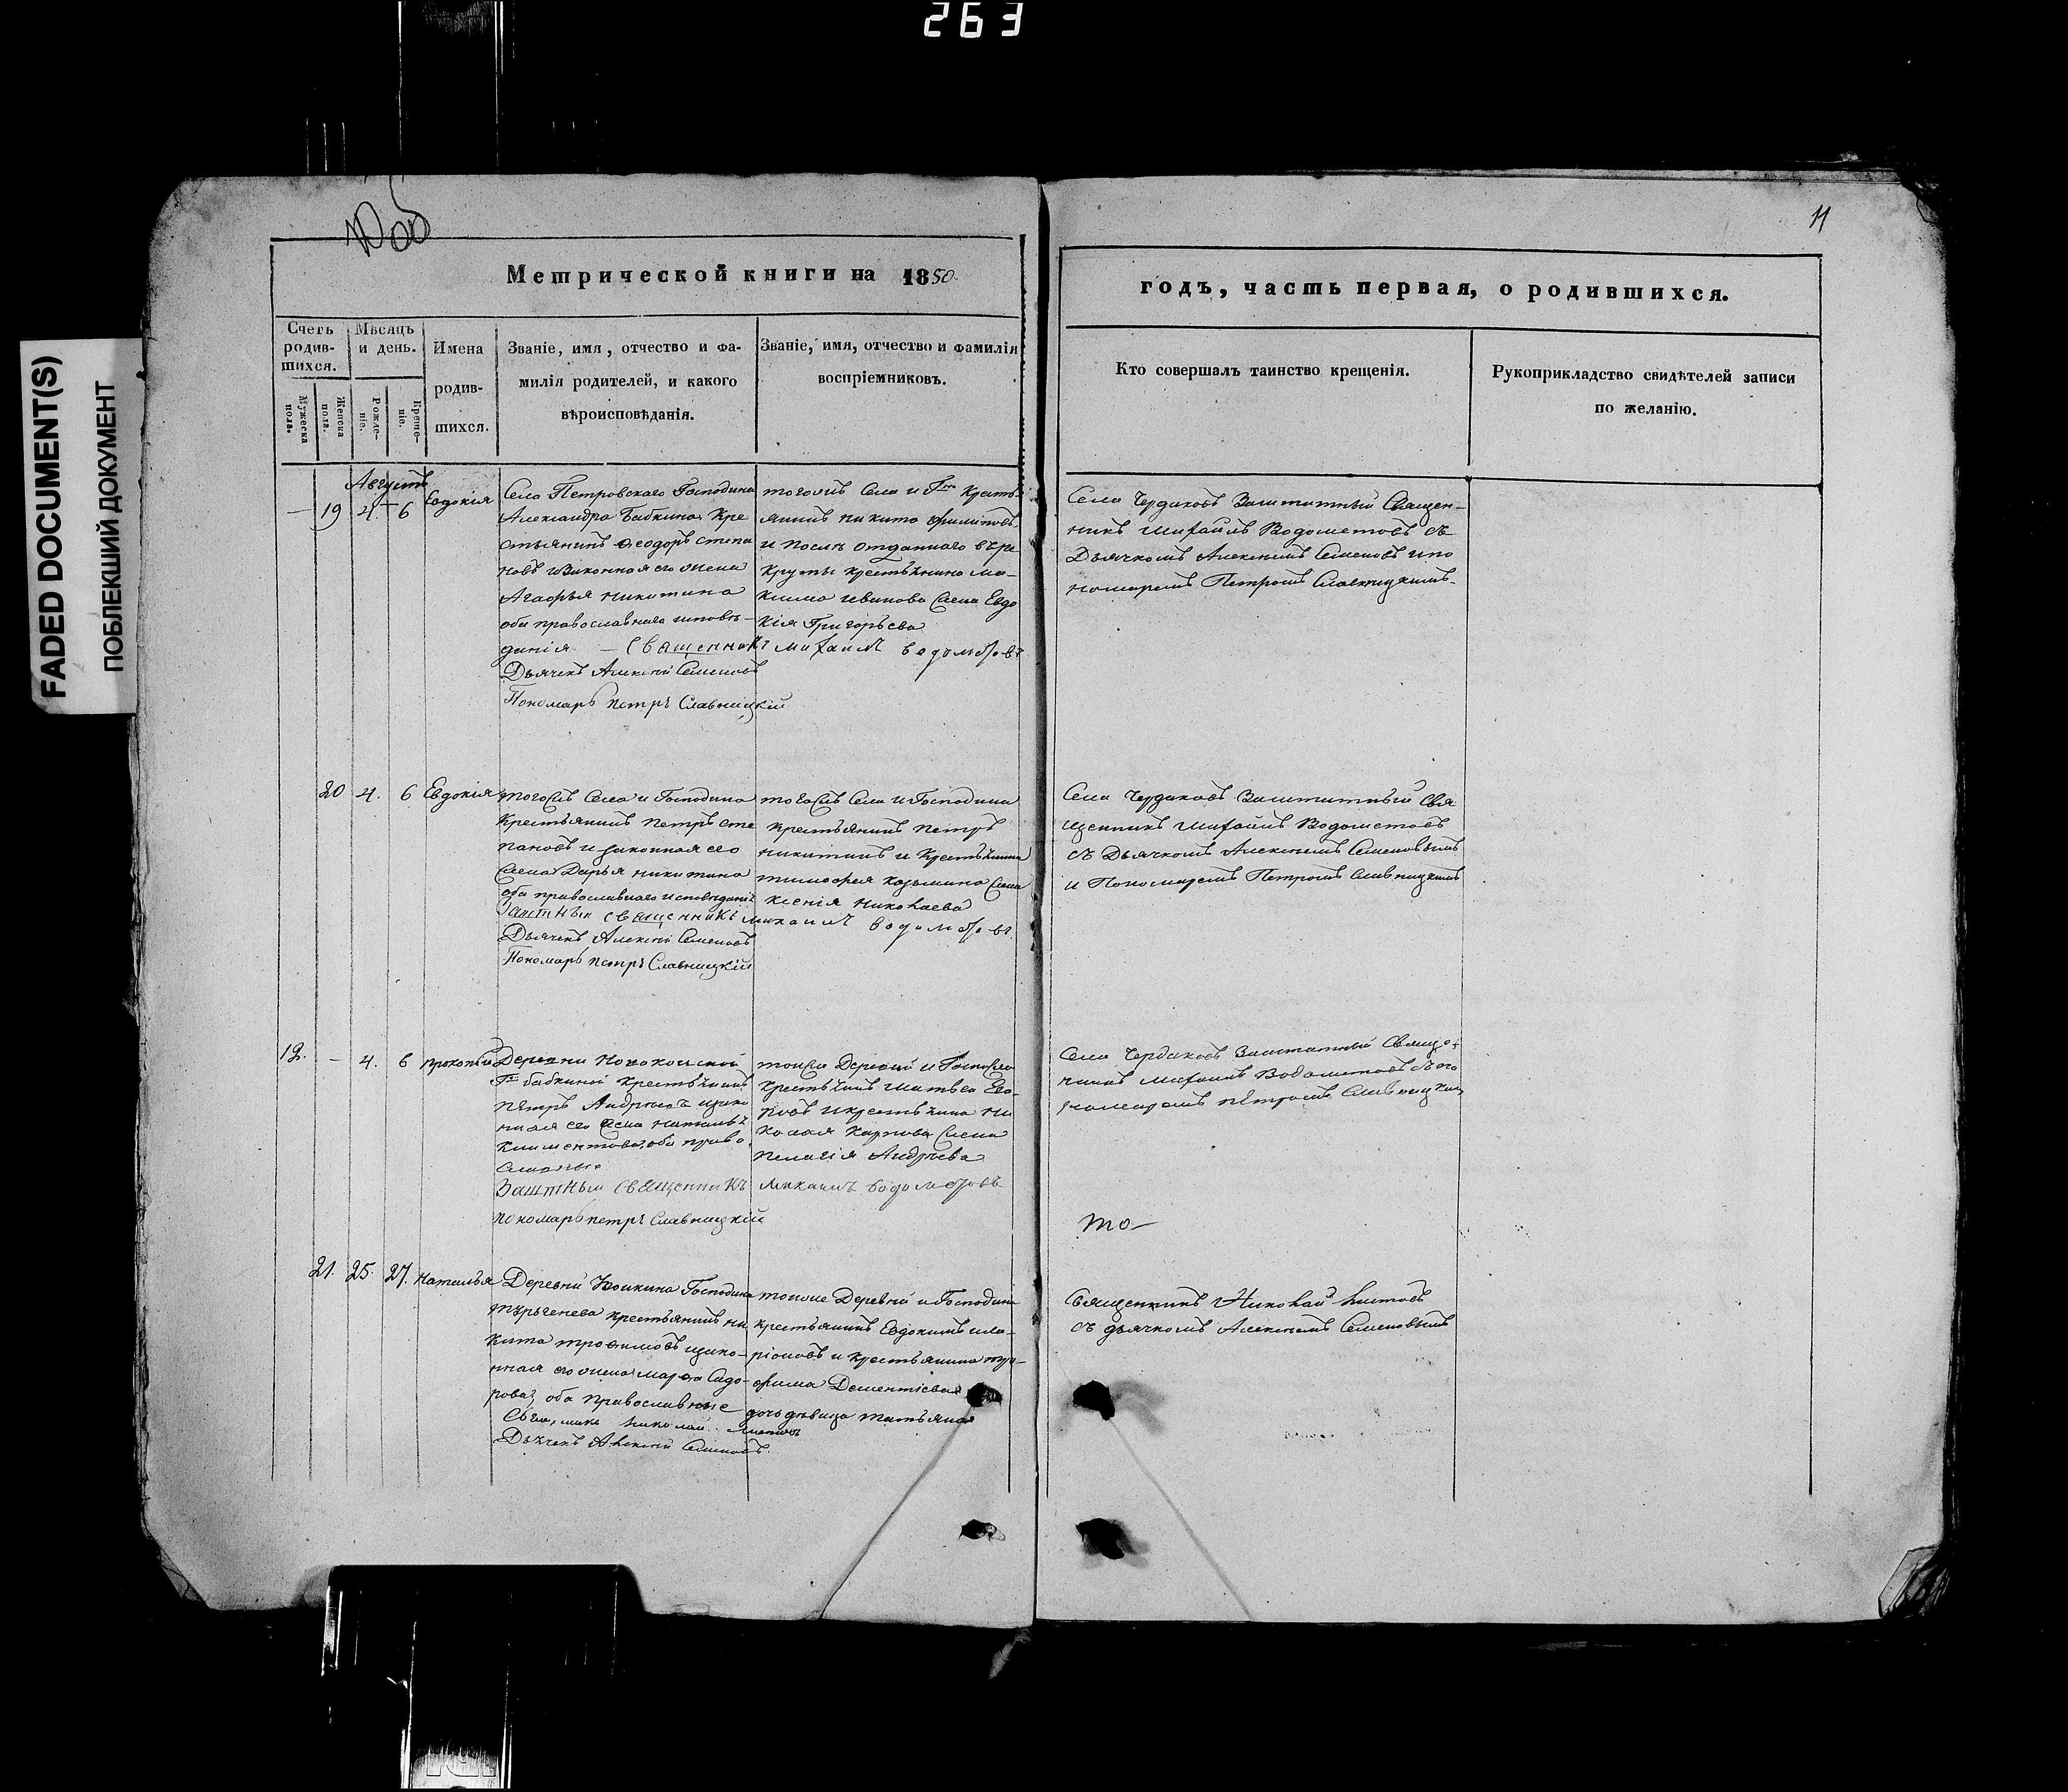 263
11
FADED DOCUMENT(S)
ПОБЛЕКШИЙ ДОКУМЕНТ
Метрической книги на 1850.
годъ, часть первая, о родившихся.
Счетъ родив-шихся.
Мужеска пола.
Женска пола.
Мѣсяцъ и день.
Рожде-ніе.
Креще-ніе.
Имена родив-шихся.
Званіе, имя, отчество и фа-
милія родителей, и какого
вѣроисповѣданія.
Званіе, имя, отчество и фамилія
воспріемниковъ.
Кто совершалъ таинство крещенія.
Рукоприкладство свидѣтелей записи
по желанію.
Августъ
— 19 4. 6 Евдокія
Села Петровскаго Господина
Александра Бабкина Кре
стьянинъ Ѳеодоръ степа
новъ и Законная его жена
Агафья никитина
оба православнаго исповѣ-
данія — Священникъ михаилъ водометовъ
Дьячекъ Алексѣй Семеновъ
Пономарь петръ Славницкій
тогожъ Села и Гна Кресть-
янинъ никита филиповъ
и послѣ отданнаго въ ре
круты крестьянина ма-
ксима иванова жена Евдо
кія Григорьева
Села Чердаковъ Заштатный Священ-
никъ Михаилъ Водометовъ съ
Дьячкомъ Алексѣемъ Семеновъ и по
номаремъ Петромъ Славницкимъ
20 4. 6 Евдокія
тогожъ Села и Господина
Крестьянинъ петръ сте
пановъ и законная его
жена Дарья никитина
оба православнаго исповѣданія
священникъ михаилъ водометовъ
Дьячекъ Алексѣй Семеновъ
Пономарь петръ Славницкій
тогожъ Села и Господина
крестьянинъ петръ
никитинъ и Крестьянина
тимофея козьмина жена
ксенія николаева
Села Чердаковъ Заштатный Свя
щенникъ Михаилъ Водометовъ
съ Дьячкомъ Алексѣемъ Семеновымъ
и Пономаремъ Петромъ Славницкимъ
12. — 4. 6 прокопій
Деревни
Гжи бабкиной крестьянинъ
петръ Андреевъ и зако
нная его жена наталья
климентова, оба право
славные
Заштный священникъ михаилъ водометовъ
пономарь петръ Славницкій
тойже Деревни и Госпожи
крестьянинъ матвей
и крестьянина ни
колая карпова жена
пелагія Андреева
Села Чердаковъ Заштатный Священ
никъ михаилъ Водометовъ съ по
номаремъ петромъ Славницкимъ
то—
21. 25. 27. Наталья
Деревни Господина
крестьянинъ ни
кита трофимовъ и зако-
нная его жена марфа Сидо-
рова, оба Православные
николай
Дьячекъ Алексѣй Семеновъ.
тойже Деревни и Господина
крестьянинъ Евдокимъ ила-
ріоновъ и крестьянина тро-
фима Дементіева
дочь дѣвица татьяна
Священникъ Николай
съ дьячкомъ Алексѣемъ Семеновымъ